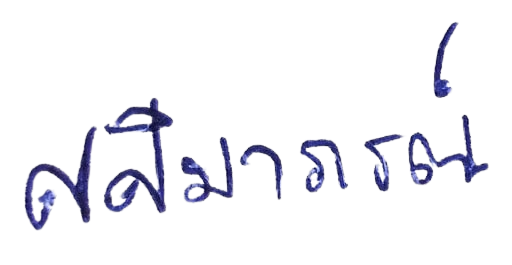 ศศิมาภรณ์